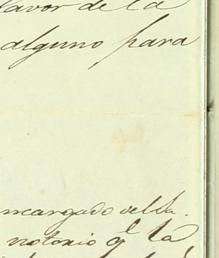 favor de la
alguno para
encargado del Sr.
notorio q.e la